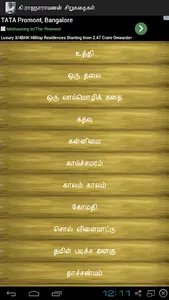 கி.ராஜநாராயணன் சிறுகதைகள்
TATA Promont, Bangalore
tatahousing.in/The Promont
Luxury 3/4BHK Hilltop Residences Starting from 2.47 Crore Onwards*
உத்தி
ஒரு தலை
ஒரு வாய்மொழிக் கதை
கதவு
கன்னிமை
காய்ச்சமரம்
காலம் காலம்
கோமதி
சொல் விளையாட்டு
தமிழ் படிச்ச அழகு
தாச்சண்யம்
12:11